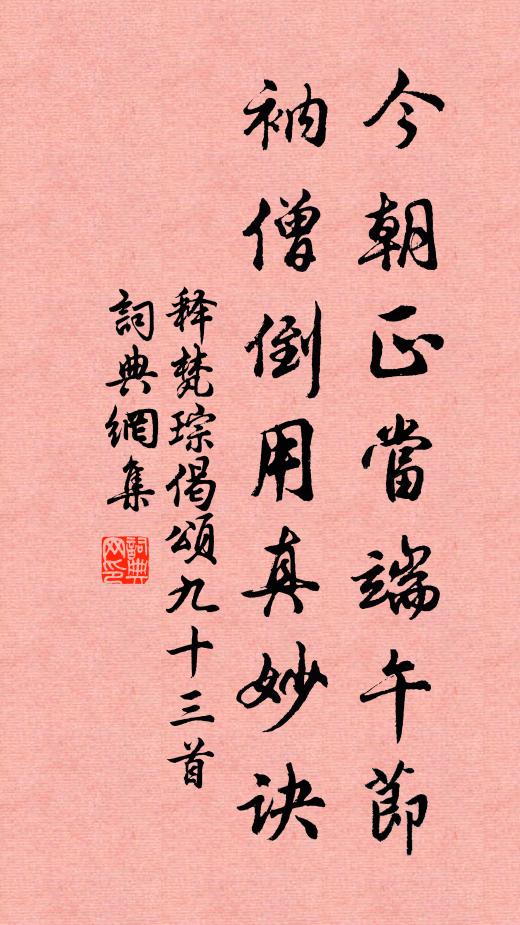 今朝正當端午節
衲僧倒用真妙訣
释梵琮偈頌九十三首
詞典網集
詞典网印